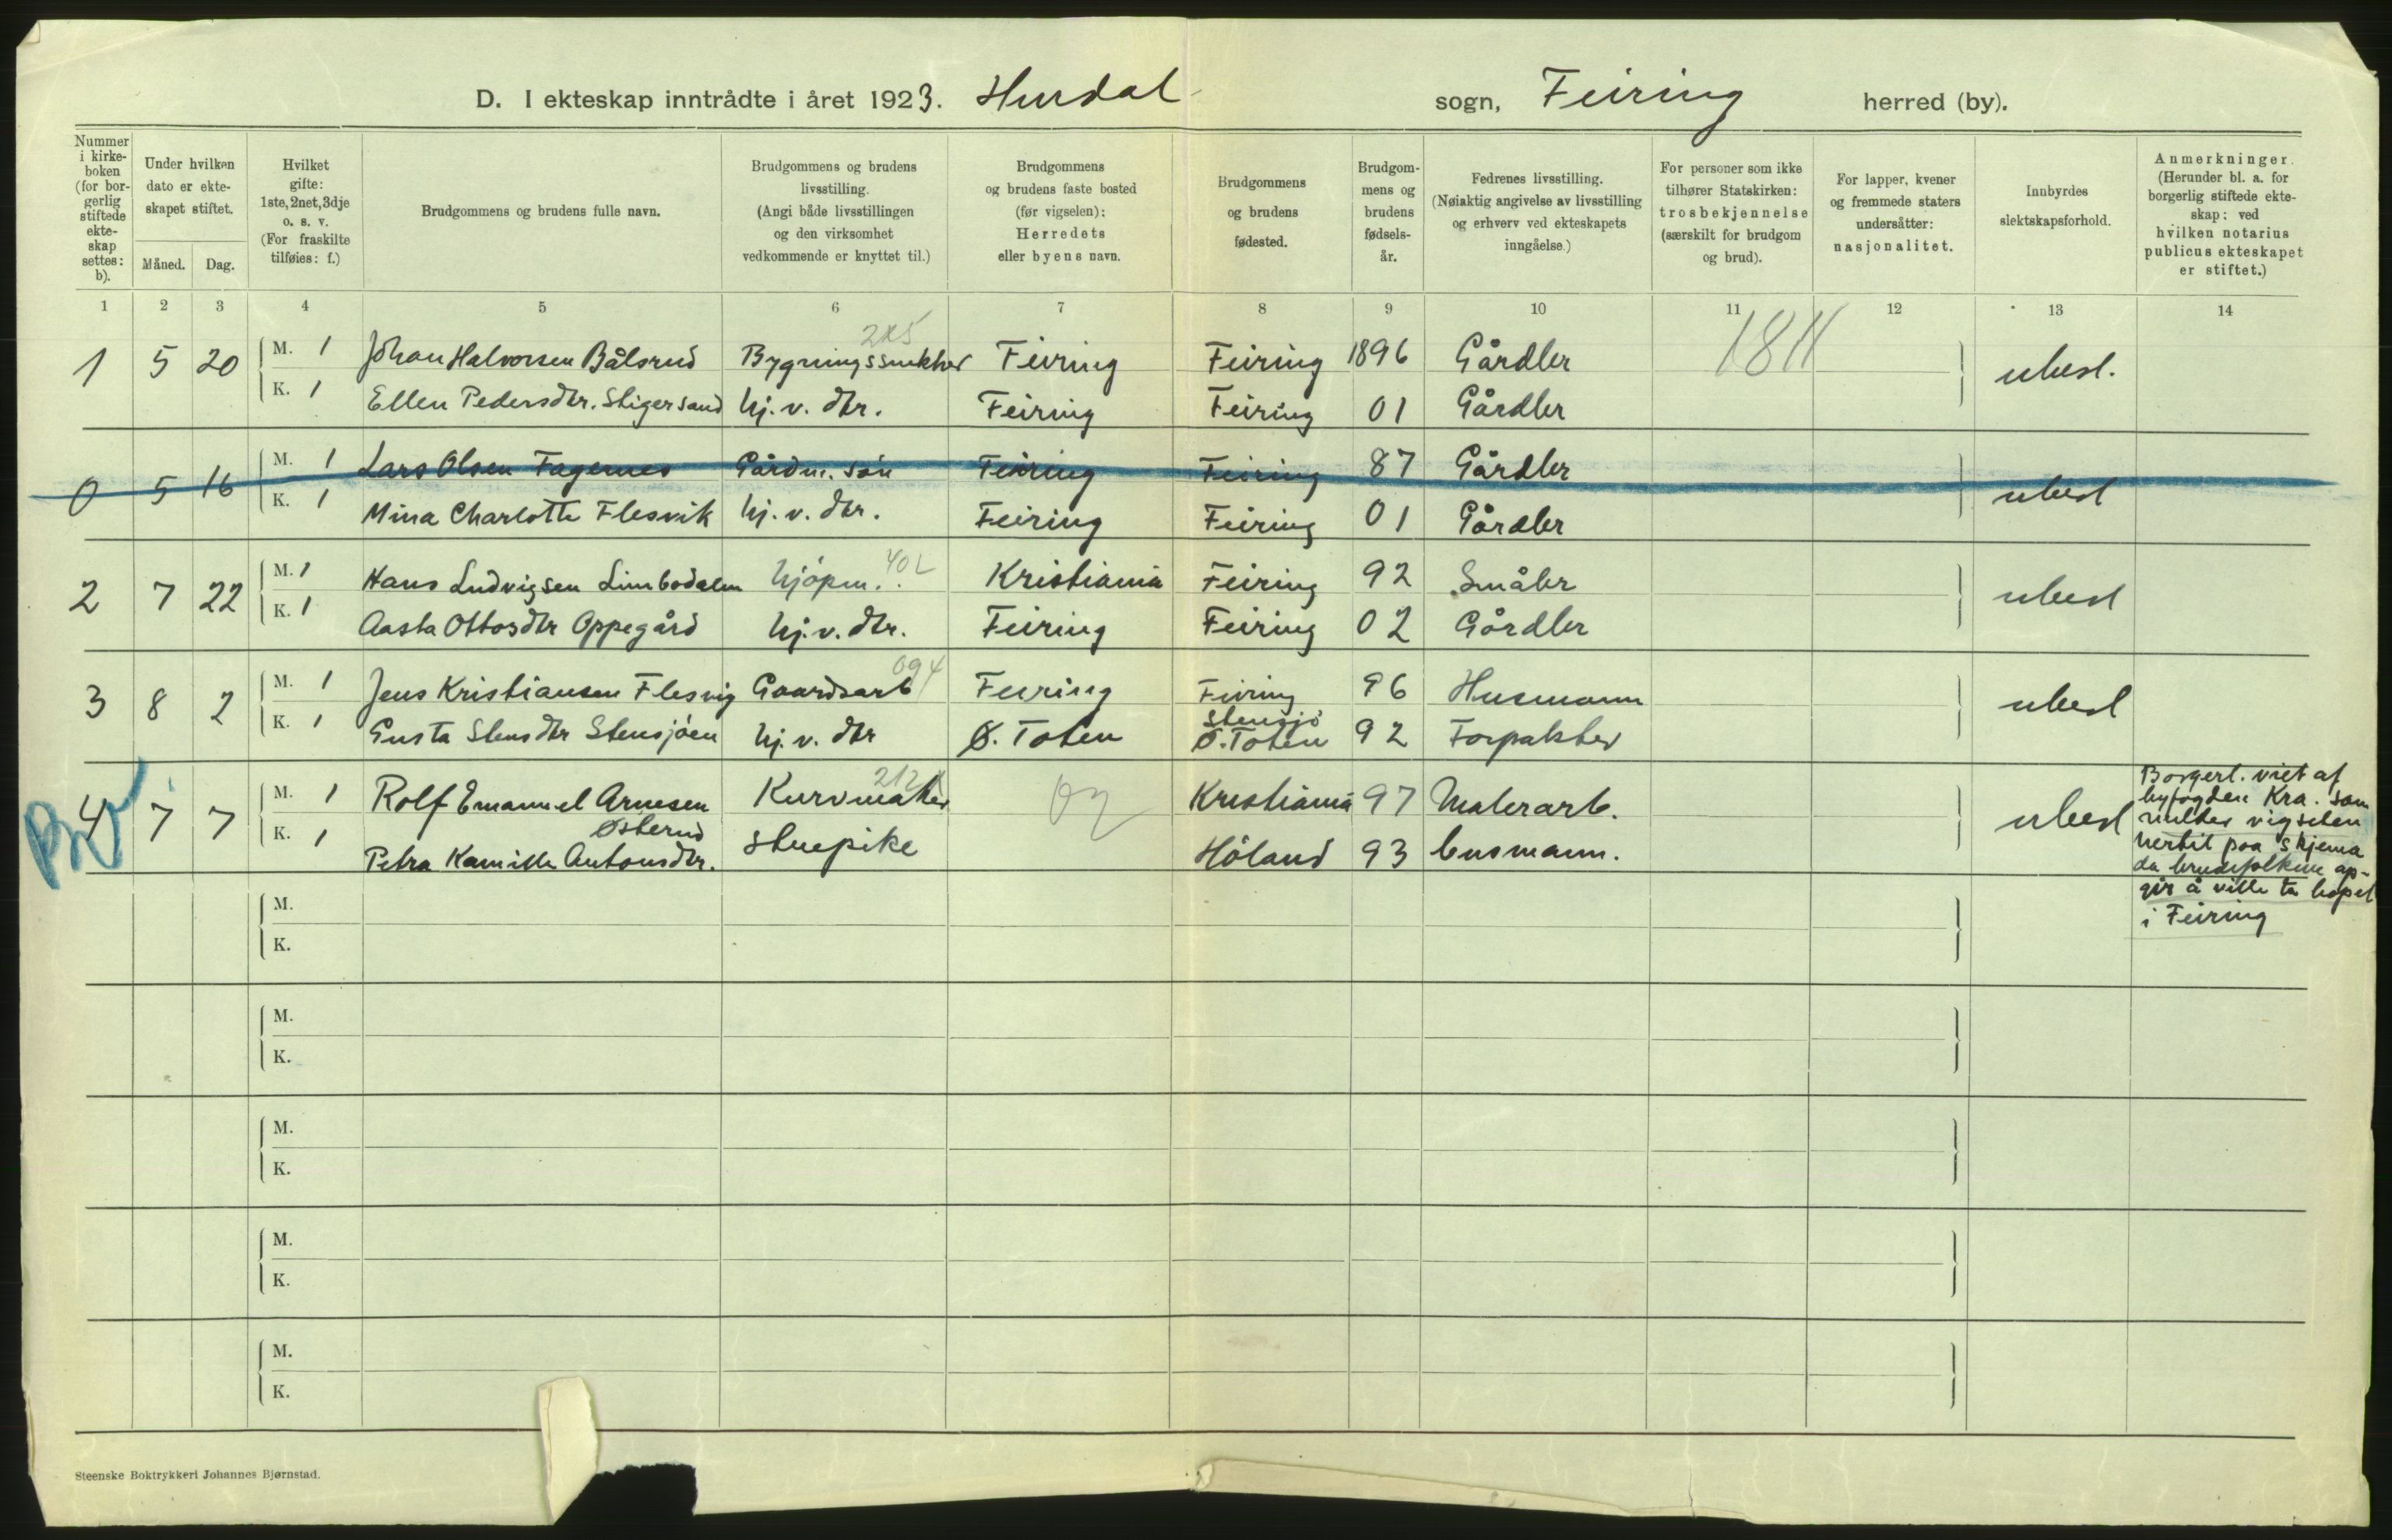 D. I ekteskap inntrådte i året 1923. Hurdal sogn, Feiring herred (by).
Nummer i kirkeboken (for borgerlig stiftede ekteskap settes: b).
Under hvilken dato er ekteskapet stiftet.
Måned. Dag.
Hvilket gifte: 1ste, 2net, 3dje o. s. v. (For fraskilte tilføies: f.)
Brudgommens og brudens fulle navn.
Brudgommens og brudens livsstilling. (Angi både livsstillingen og den virksomhet vedkommende er knyttet til.)
Brudgommens og brudens faste bosted (før vigselen): Herredets eller byens navn.
Brudgommens og brudens fødested.
Brudgommens og brudens fødselsår.
Fedrenes livsstilling. (Nøiaktig angivelse av livsstilling og erhverv ved ekteskapets inngåelse.)
For personer som ikke tilhører Statskirken: trosbekjennelse (særskilt for brudgom og brud).
For lapper, kvener og fremmede staters undersåtter: nasjonalitet.
Innbyrdes slektskapsforhold.
Anmerkninger. (Herunder bl. a. for borgerlig stiftede ekteskap: ved hvilken notarius publicus ekteskapet er stiftet.)
1 2 3 4 5 6 7 8 9 10 11 12 13 14
1 5 20 M. 1 Johan Halvorsen Bålsrud Bygningssnekker Feiring Feiring 1896 Gårdbr 1811 ubesl.
K. 1 Ellen Pedersdtr. Stigersand hj. v. dtr. Feiring Feiring 01 Gårdbr
0 5 16 M. 1 Lars Olsen Fagernes Gårdm. søn Feiring Feiring 87 Gårdbr ubesl
K. 1 Mina Charlotte Flesvik hj. v. dtr. Feiring Feiring 01 Gårdbr
2 7 22 M. 1 Hans Ludvigsen Limbodalen kjøpm. Kristiania Feiring 92 Småbr ubesl
K. 1 Aasta Ottosdtr Oppegård hj. v. dtr. Feiring Feiring 02 Gårdbr
094
3 8 2 M. 1 Jens Kristiansen Flesvig Gaardsarb Feiring Feiring 96 Husmann ubesl
K. 1 Gusta Stensdtr Stensjøen hj. v. dtr Ø. Toten Stensjø Ø. Toten 92 Forpakter
212
4 7 7 M. 1 Rolf Emanuel Arnesen Kurvmaker Kristiania 97 Malerarb. ubesl
Østerud
K. 1 Petra Kamilla Antonsdtr. stuepike Høland 93 husmann.
Borgerl. viet af
byfogden Kra. som
melder vigselen
hertil paa skjema
da brudefolkene op-
gir å ville ta bopel
i Feiring
M.
K.
M.
K.
M.
K.
M.
K.
M.
K.
Steenske Boktrykkeri Johannes Bjørnstad.